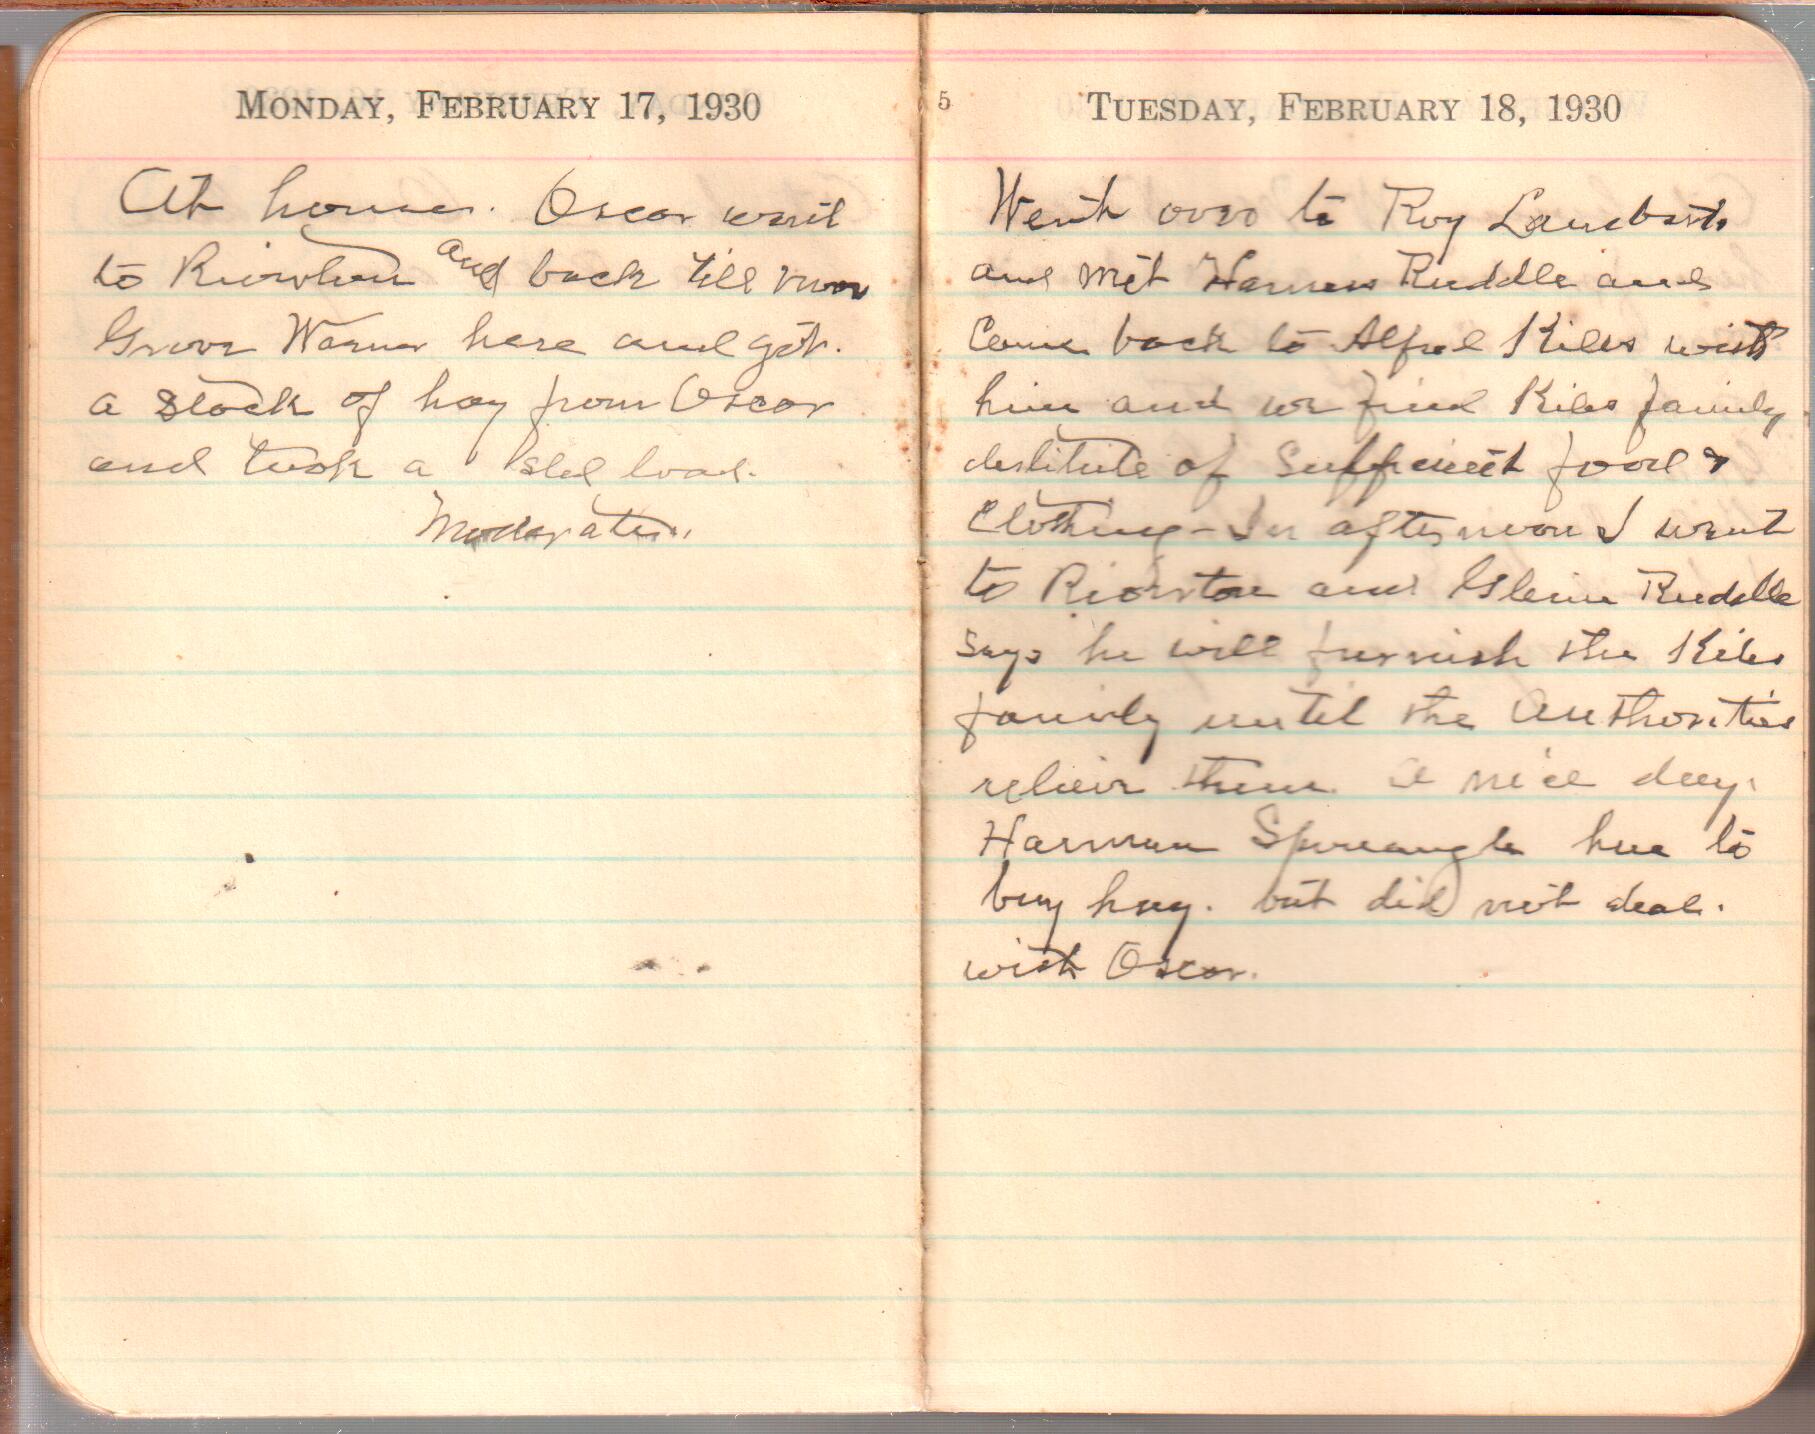 MONDAY, FEBRUARY 17, 1930
At home. Oscar went
to Riverton and back till noon
Grover Warner here and got.
a stack of hay from Oscar
and took a sled load.
Moderate.
5
TUESDAY, FEBRUARY 18, 1930
Went over to Roy Lamberts
and met Harness Ruddle and
Came back to Alfred Kiles with
him and we find Kiles family
destitute of Sufficient food &
Clothing - In afternoon I went
to Riverton and Glenn Ruddle
says he will furnish the Kiles
family until the Authorities
relieve them. a nice day.
Harman here to
buy hay. but did not deal.
with Oscar.